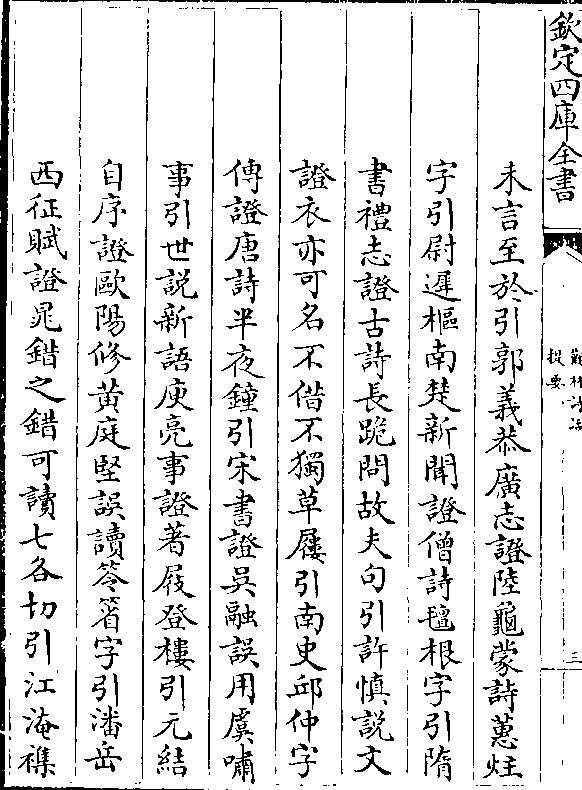 欽定四庫全書
觀林詩話
提要
三
未言至於引郭義恭廣志證陸龜蒙詩蕙炷
字引尉遲樞南楚新聞證僧詩氊根字引隋
書禮志證古詩長跪問故夫句引許慎説文
證衣亦可名不借不獨草屨引南史邱仲孚
傳證唐詩半夜鐘引宋書證吳融誤用虞嘯
事引世説新語庾亮事證著屐登樓引元結
自序證歐陽修黄庭堅誤讀笭箵字引潘岳
西征賦證鼂錯之錯可讀七各切引江淹襍